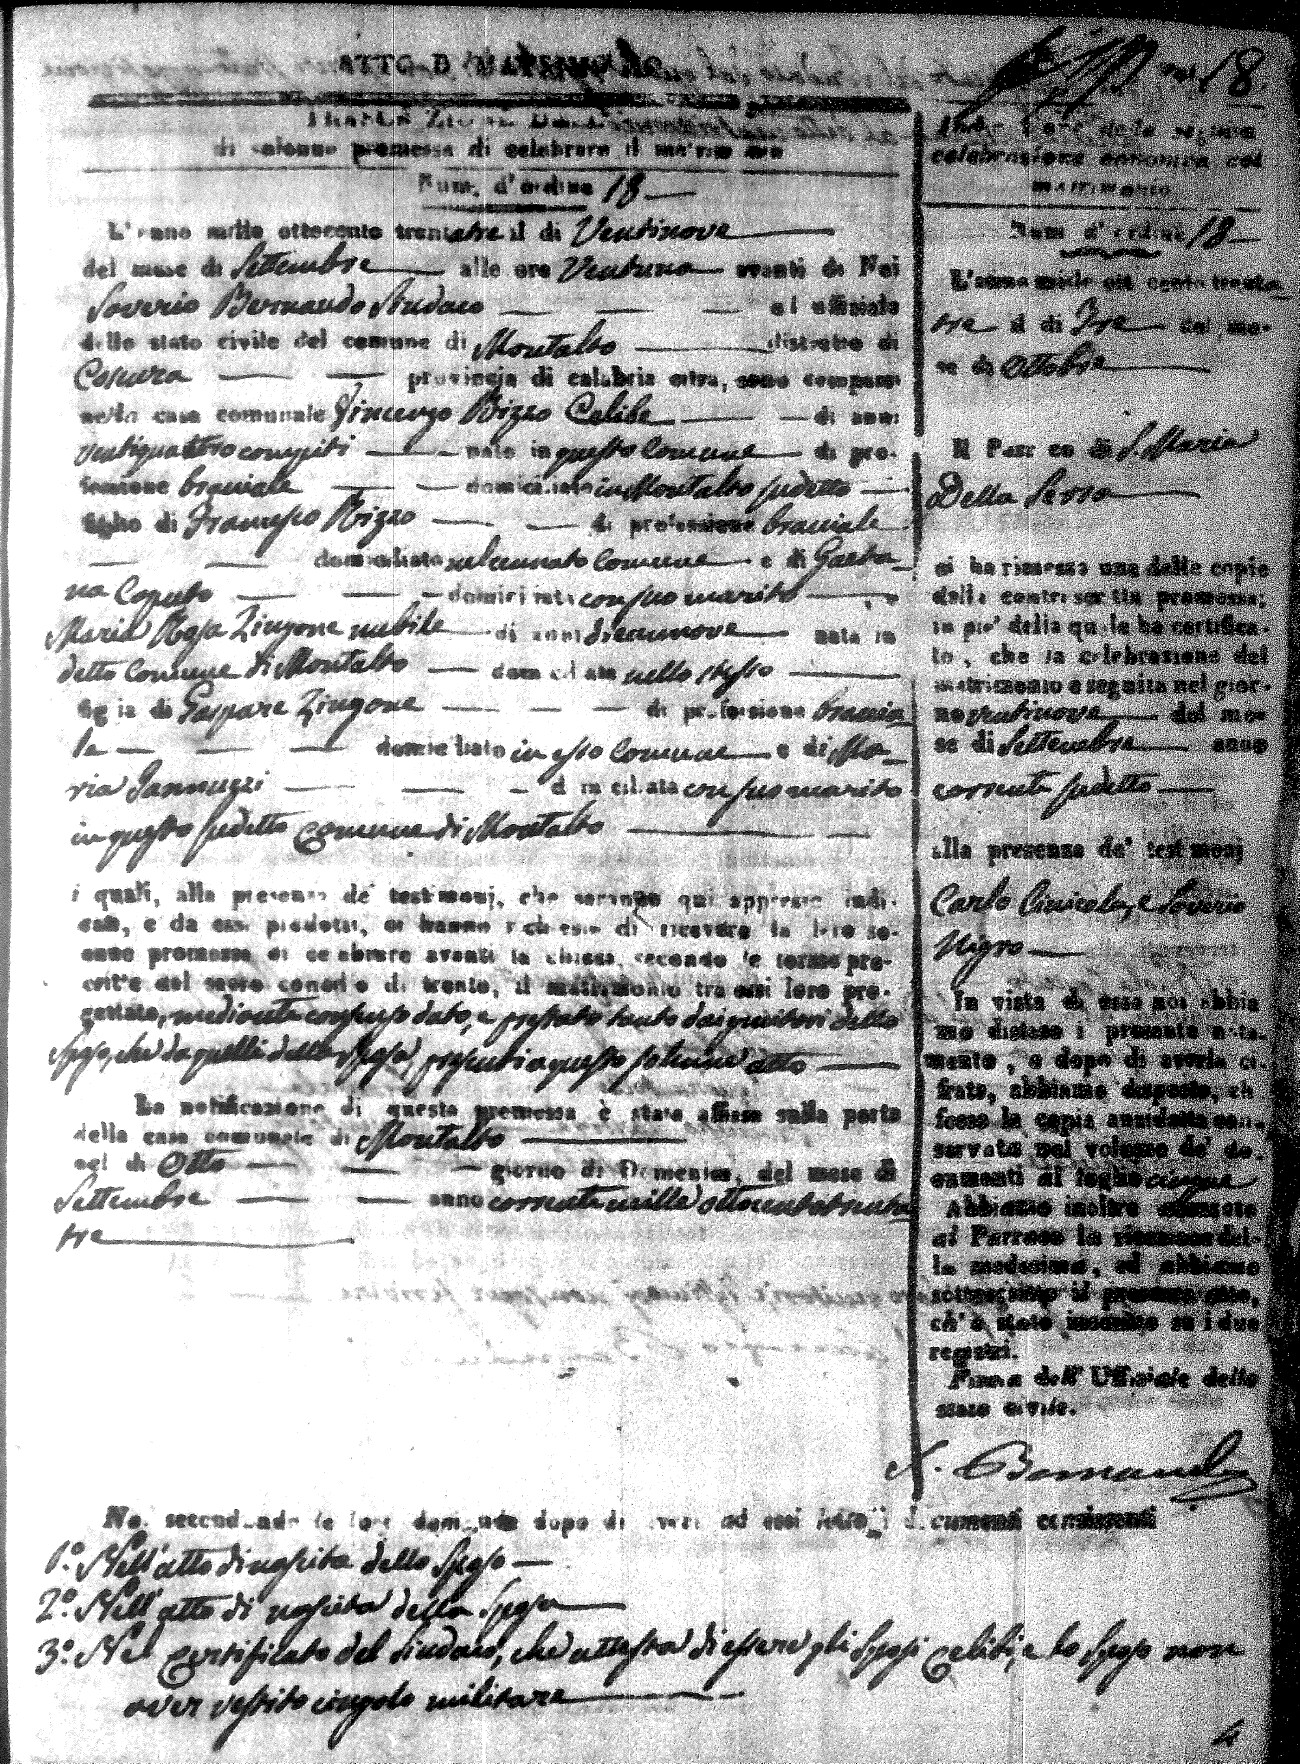 di solenne promessa di celebrare il matrimonio
Num. d'ordine 18
L'anno mille ottocento trentatre il di Ventinove
del mese di Settembre alle ore Ventuna avanti di Noi
Saverio Bernaudo Sindaco ed uffiziale
dello stato civile del comune di Montalto distretto di
Cosenza provincia di calabria citra, sono comparsi
nella casa comunale Vincenzo Rizzo Celibe di anni
ventiquattro compiti nato in questo Comune di pro-
fessione bracciale domiciliato in Montalto sudetto
figlio di Francesco Rizzo di professione bracciale
domiciliato nel cennato Comune e di Gaeta-
na Caputo domiciliata con suo marito e
Maria Rosa Zingone nubile di anni diecinnove nata in
detto Comune di Montalto domiciliata nello stesso
figlia di Gaspare Zingone di professione braccia-
le domiciliato in esso Comune e di Ma-
ria Iannuzzi domiciliata con suo marito
in questo sudetto Comune di Montalto
i quali, alla presenza de' testimonj, che saranno qui appresso indi-
cati, e da essi prodotti, ci hanno richiesto di ricevere la loro so-
lenne promessa di celebrare avanti la chiesa, secondo le forme pre-
scritte dal sacro concilio di trento, il matrimonio tra essi loro pro-
gettato, mediante consenso dato, e prestato tanto dai genitori dello
sposo, che da quelli della sposa, presenti a questo solenne atto
La notificazione di questa promessa è stata affissa sulla porta
della casa comunale di Montalto
nel di Otto giorno di Domenica, del mese di
Settembre anno corrente mille ottocentotrenta
tre
Noi secondando le loro domande dopo di aver ad essi letto i documenti consistenti
1.º Nell'atto di nascita dello Sposo
2.º Nell'atto di nascita della Sposa
3.º Nel certificato del Sindaco, che attesta di essere gli Sposi celibi, e lo Sposo non
aver vestito cingolo militare
18
celebrazione canonica del
matrimonio
Num. d'ordine 18
L'anno mille ottocento trenta-
tre il di Tre del me-
se di Ottobre
Il Parroco di S. Maria
Della Serra
ci ha rimessa una delle copie
della controscritta promessa;
in piè della quale ha certifica-
to, che la celebrazione del
matrimonio è seguita nel gior-
no ventinove del me-
se di Settembre anno
corrente sudetto
alla presenza de' testimonj
Carlo e Saverio
Nigro
In vista di essa noi abbia-
mo disteso il presente nota-
mento, e dopo di averla ci-
frata, abbiamo disposto, che
fosse la copia anzidetta con-
servata nel volume de' do-
cumenti al foglio cinque
Abbiamo inoltre accusato
al Parroco la ricezione del-
la medesima, ed abbiamo
sottoscritto il presente atto,
ch'è stato inscritto su i due
registri.
Firma dell'Uffiziale dello
stato civile.
S. Bernaudo
4